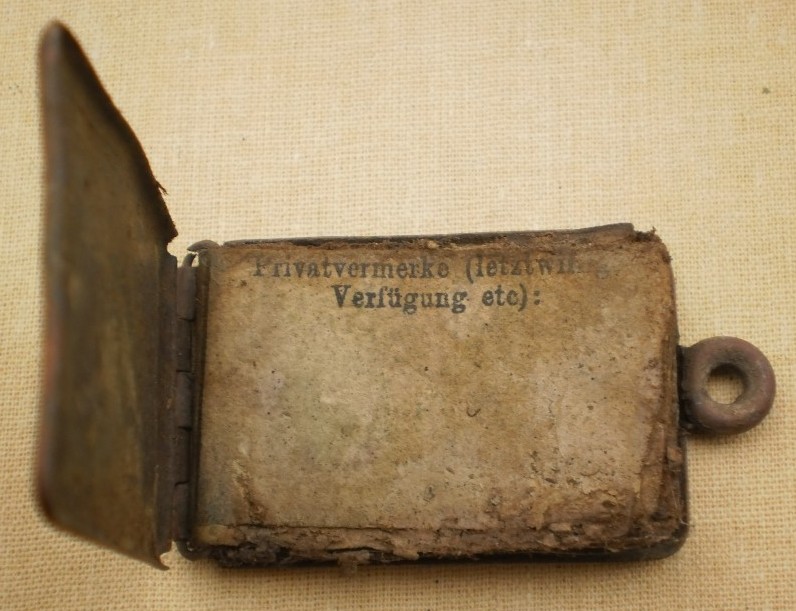 Privatvermerke (letztwillig.
Verfügung etc):